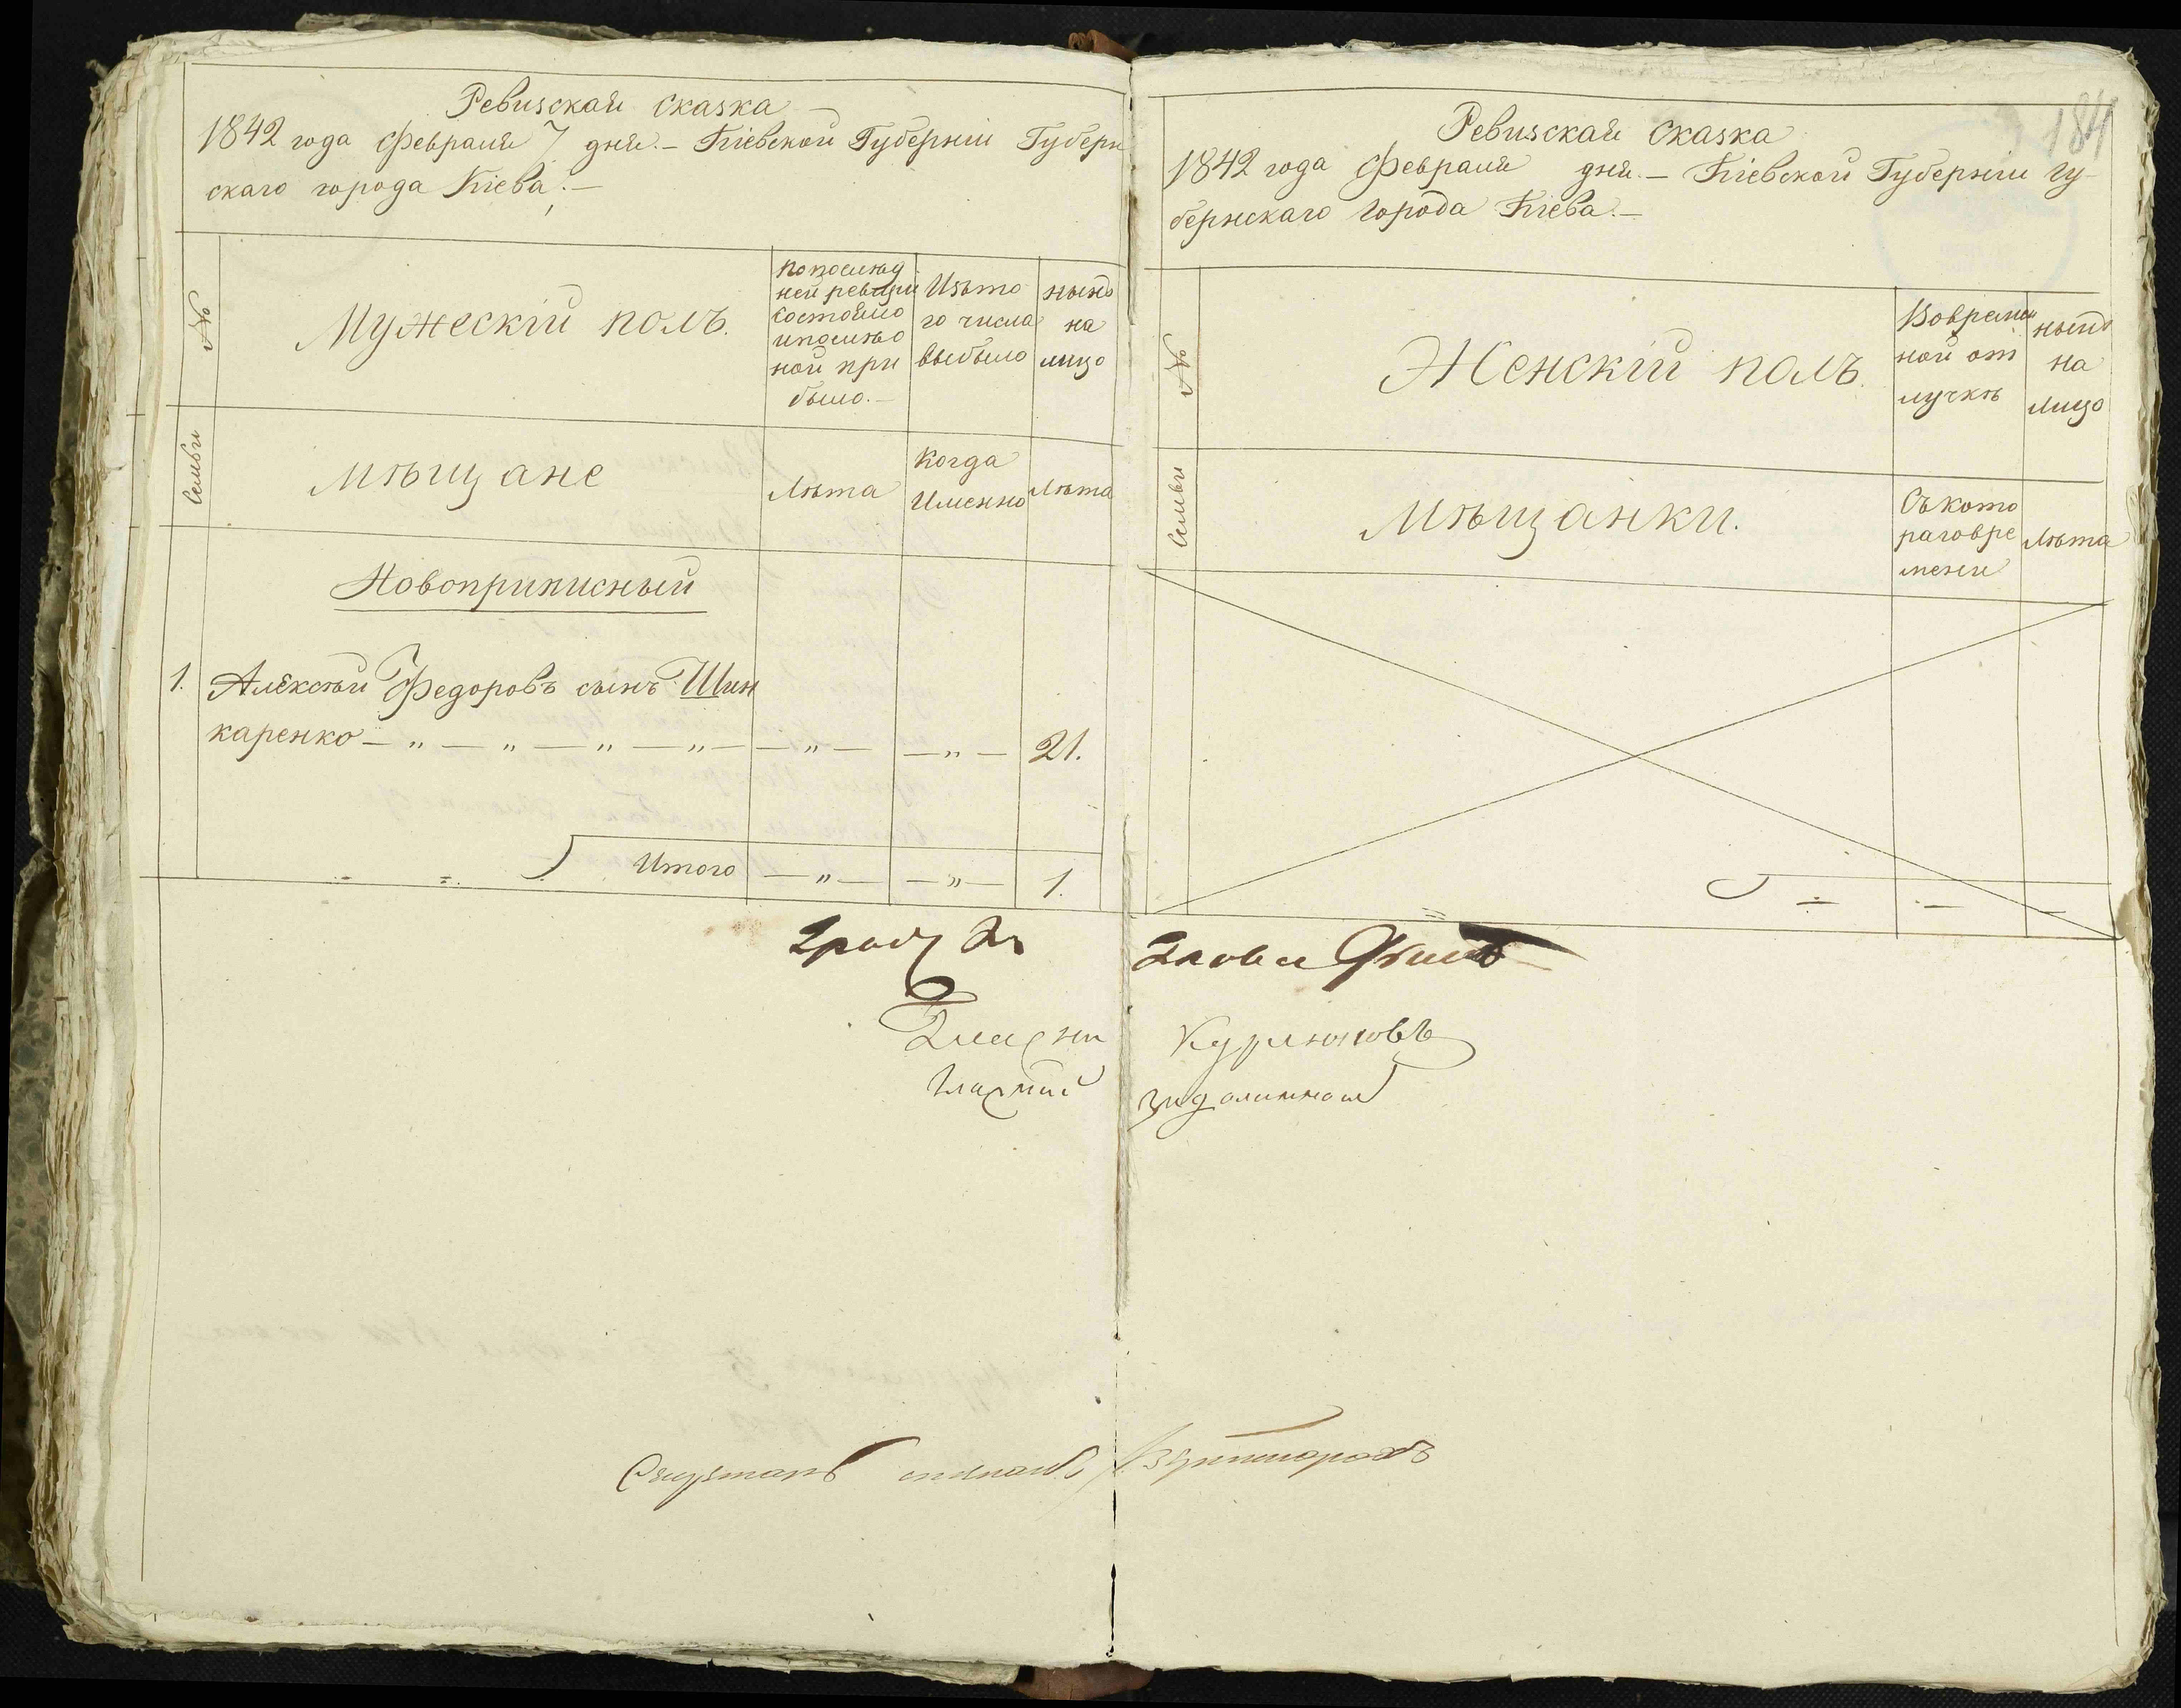 Ревизская сказка
1842 года Февраля 7 дня. – Кіевской Губерніи Губерн
скаго города Кіева. –
№
Мужескій полъ.
по послѣд
ней ревизіи
состояло
и послѣ о
ной при
было. –
Изъ то
го числа
выбыло
нынѣ
на
лицо
Семьи
Мѣщане
Лѣта
Когда
Именно
Лѣта
Новоприписный
1. Алексѣй Федоровъ сынъ Шин
каренко – „ – „ – „ – „ – – „ – – „ – 21.
Итого – „ – – „ – 1.
184
Ревизская сказка
1842 года Февраля дня. – Кіевской Губерніи Гу-
бернскаго Города Кіева. –
№
Женскій полъ.
Во времен
ной от
лучкѣ
нынѣ
на
лицо
Семьи
Мѣщанки.
Съ кото
раго вре
мени
Лѣта
Голова
Гласный